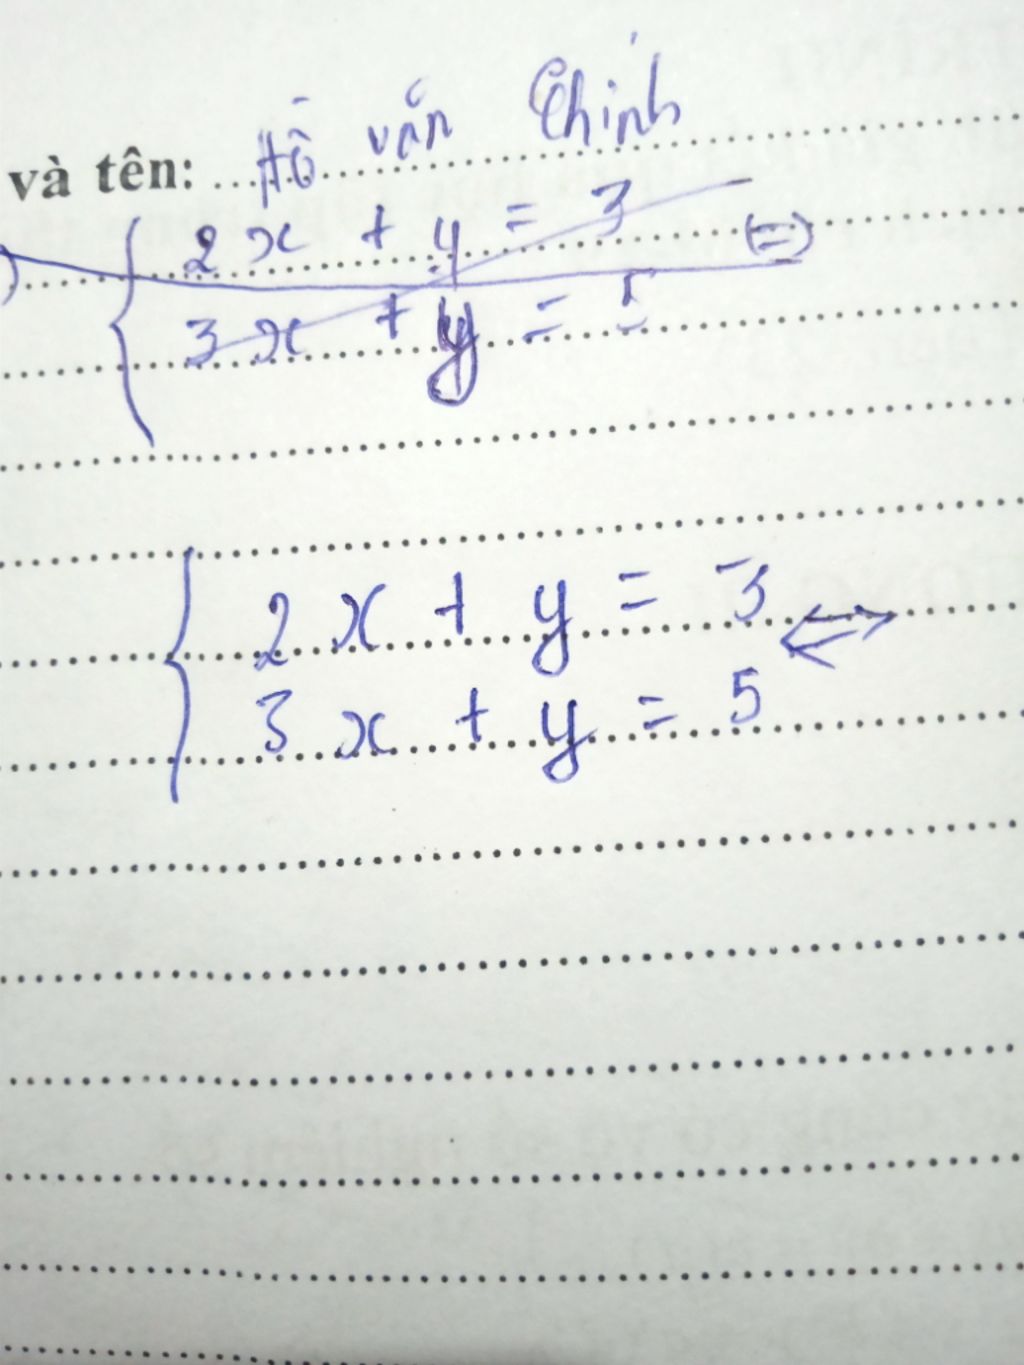 và tên: Hồ văn Chinh
) 2x + y = 3 (=)
3x + y = 5
2x + y = 3 <=>
3x + y = 5